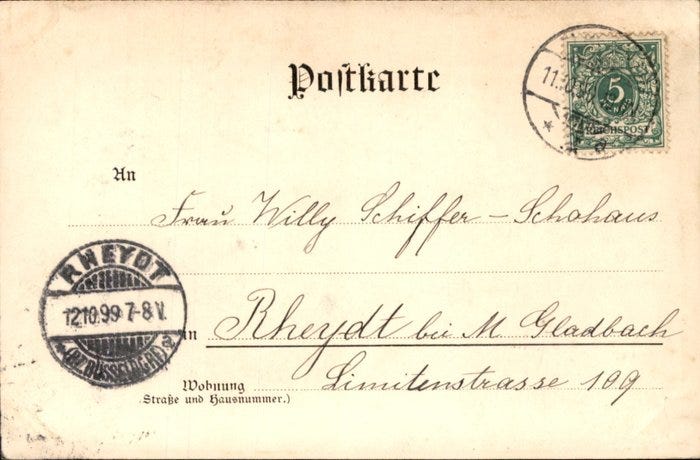 Postkarte
11.10.
5
REICHSPOST
a
An
Frau Willy Schiffer – Schahaus
RHEYDT
12 10.99 7-8 V.
* (BZ. DÜSSELDORF) a
in Rheydt bei M Gladbach
Wohnung Limitenstrasse 109
Straße und Hausnummer.)